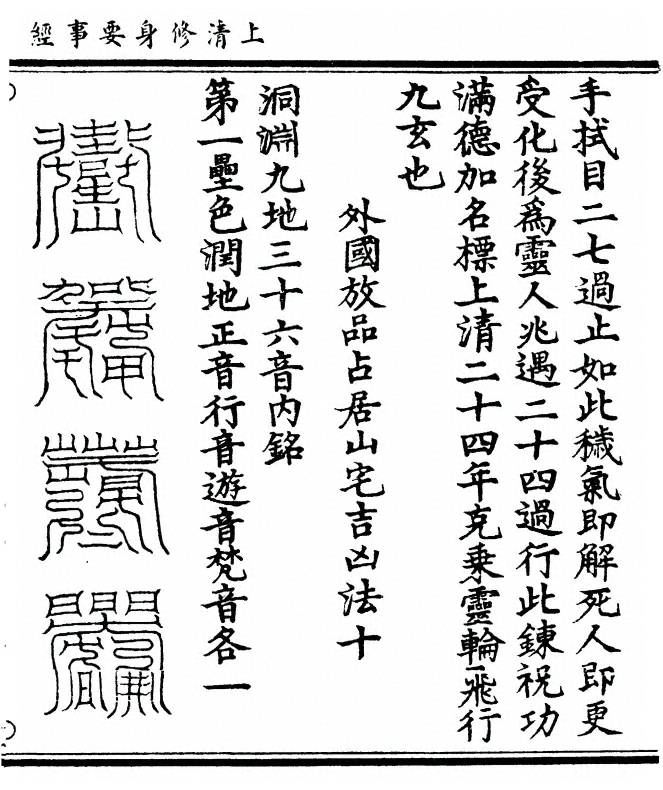 上清修身要事經
手拭目二七過止如此穢氣即解死人即更
受化後爲靈人兆遇二十四過行此鍊祝功
滿德加名標上清二十四年克乗靈輪飛行
九玄也
外國放品占居山宅吉凶法十
洞淵九地三十六音內銘
第一壘色潤地正音行音遊音梵音各一